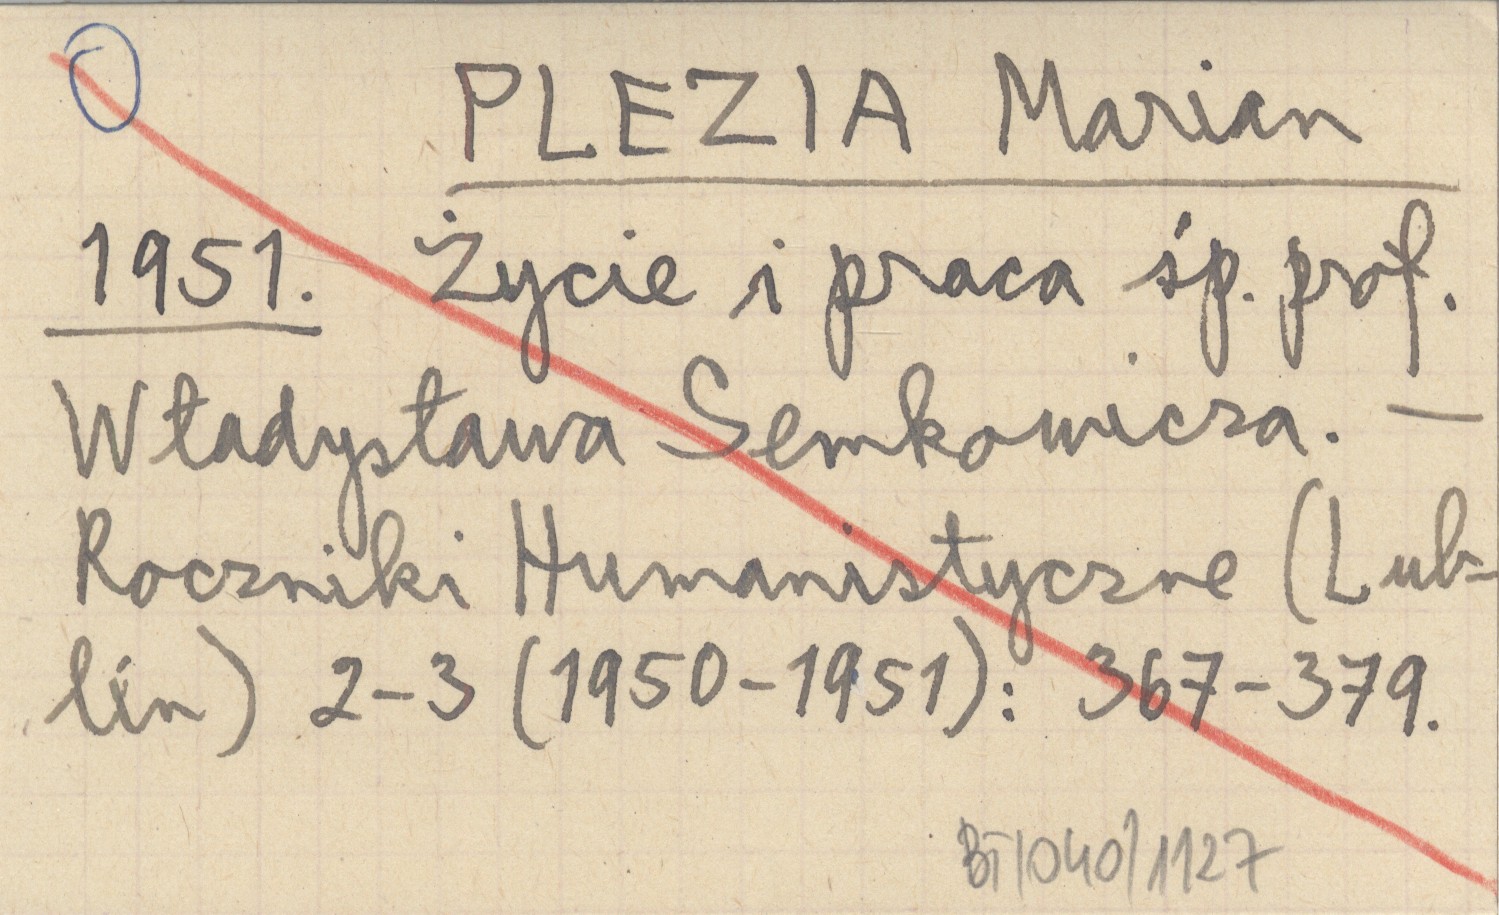 PLEZIA Marian
1951. Życie i praca śp. prof.
Władysława Semkowicza. —
Roczniki Humanistyczne (Lub-
lin) 2-3 (1950-1951): 367-379.
BT/040/1127